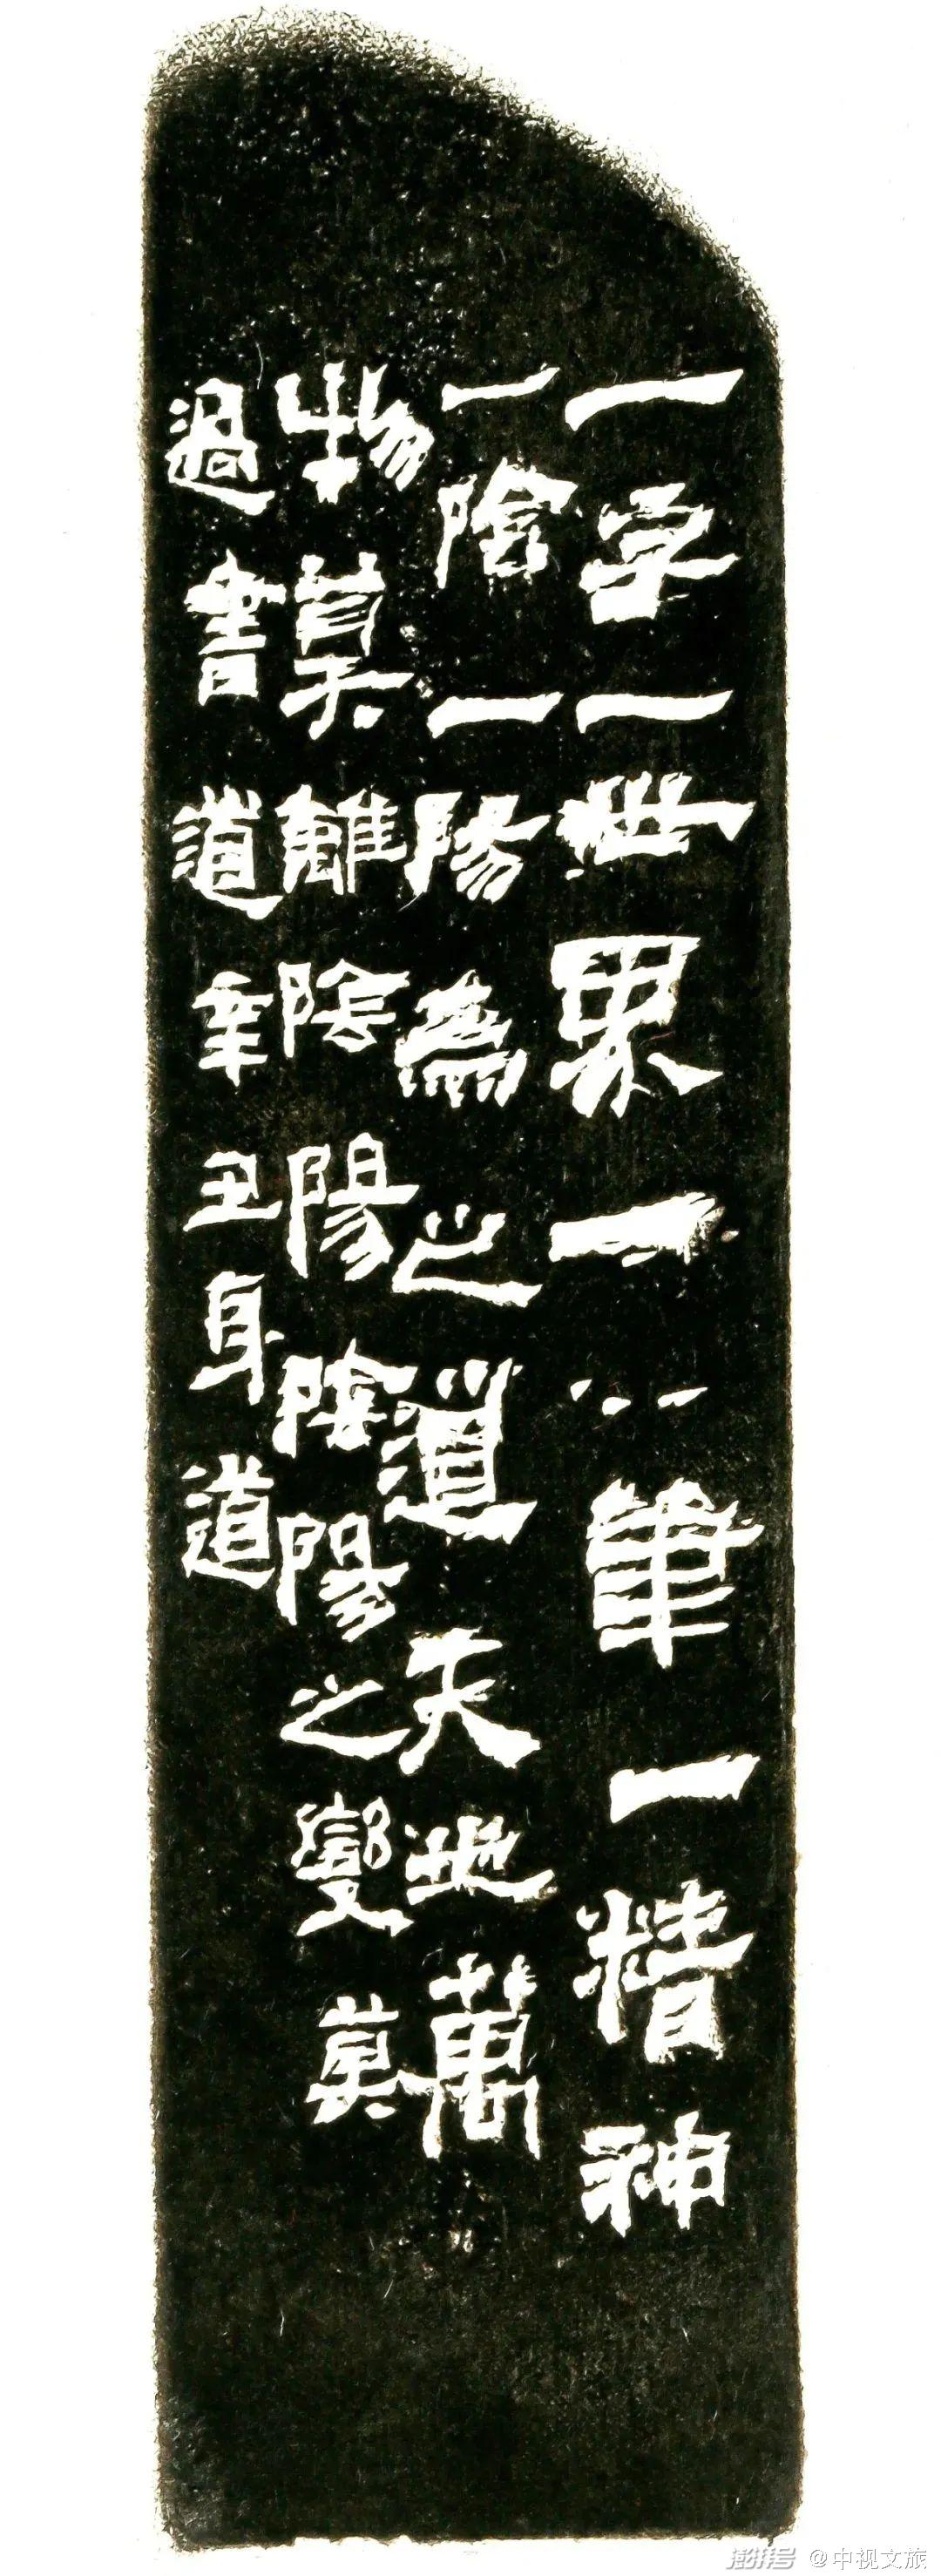 一字一世界一筆一精神
一陰一陽為之道天地萬
物莫離陰陽陰陽之變莫
過書道辛丑身道
澎湃号 @中视文旅